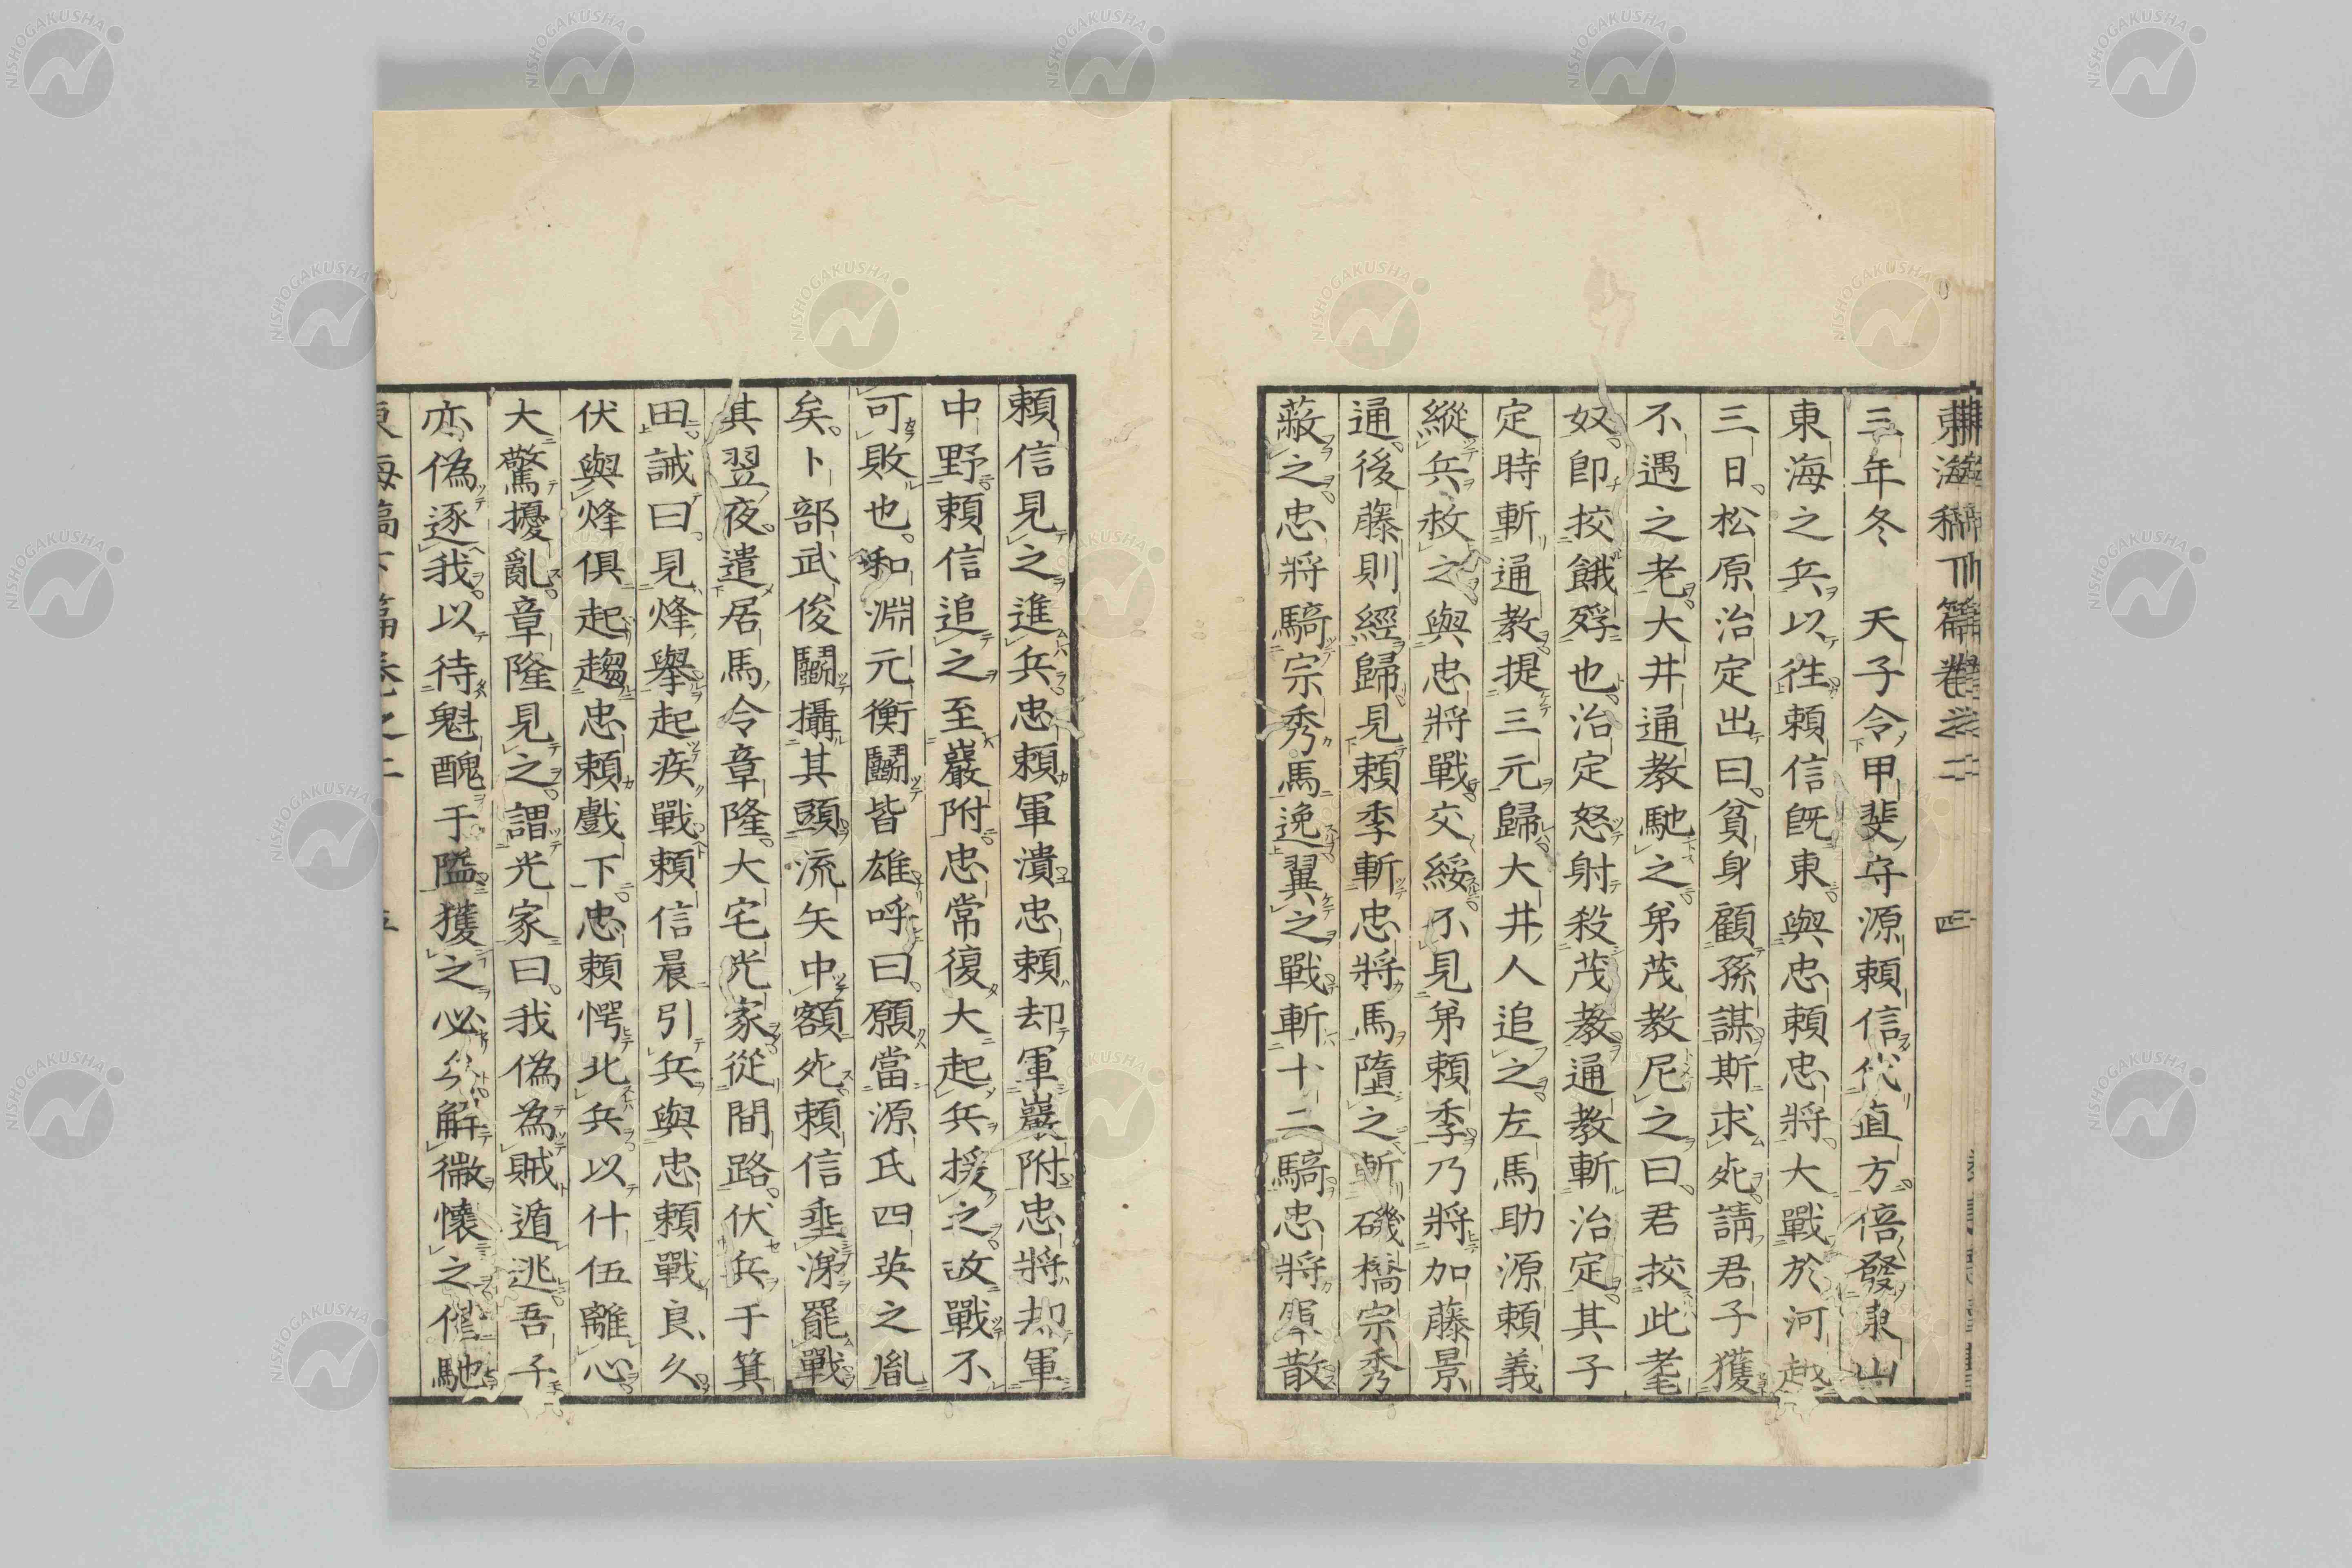 東海稿下篇卷之二 四
三年冬　天子令甲斐守源頼信代直方倍發東山
東海之兵以徃頼信既東與忠頼忠將大戰於河越
三日松原治定出曰貧身顧孫謀斯求死請君子獲
不遇之老大井通教馳之弟茂教尼之曰君挍此耄
奴卽挍餓殍也治定怒射殺茂教通教斬治定其子
定時斬通教提三元歸大井人追之左馬助源頼義
縱兵救之與忠將戰交綏不見弟頼季乃將加藤景
通後藤則經歸見頼季斬忠將馬墮之斬磯橋宗秀
蔽之忠將騎宗秀馬逸翼之戰斬十二騎忠將軍散
頼信見之進兵忠頼軍潰忠頼却軍巖附忠將却軍
中野頼信追之至巖附忠常復大起兵援之故戰不
可敗也和淵元衡鬭皆雄呼曰願當源氏四英之胤
矣卜部武俊鬭攝其頭流矢中額死頼信垂涕罷戰
其翌夜遣居馬令章隆大宅光家從間路伏兵于箕
田誡曰見烽舉起疾戰頼信晨引兵與忠頼戰良久
伏與烽俱起趨忠頼戲下忠頼愕北兵以什伍離心
大驚擾亂章隆見之謂光家曰我偽為賊遁逃吾子
亦偽逐我以待魁醜于隘獲之必矣解微懷之催馳
東海稿下篇卷之二 五
NISHOGAKUSHA